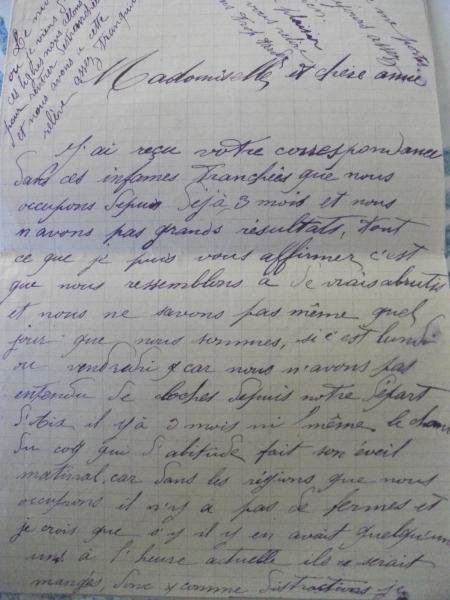 ou je viens
ces lignes nous allons
pour entrer
et nous avons à cette
relève assez tranquille
plaisir
vous relire
me porte
toujours assez
Madomiselle et chère amie
J'ai reçu votre correspondance
dans ces infâmes tranchées que nous
occupons depuis déjà 3 mois et nous
n'avons pas grands résultats, tout
ce que je puis vous affirmer c'est
que nous ressemblons à de vrais abrutis
et nous ne savons pas même quel
jour que nous sommes, si c'est lundi
ou vendredi car nous n'avons pas
entendu de cloches depuis notre départ
d'Aix il y a 9 mois ni l'même le chant
du coq qui d'abitude fait son éveil
matinal, car dans les régions que nous
occupons il n'y a pas de fermes et
je crois que s'y il y en avait quelqu'un
uns à l'heure actuelle ils ne serait
mangés, donc comme distractions